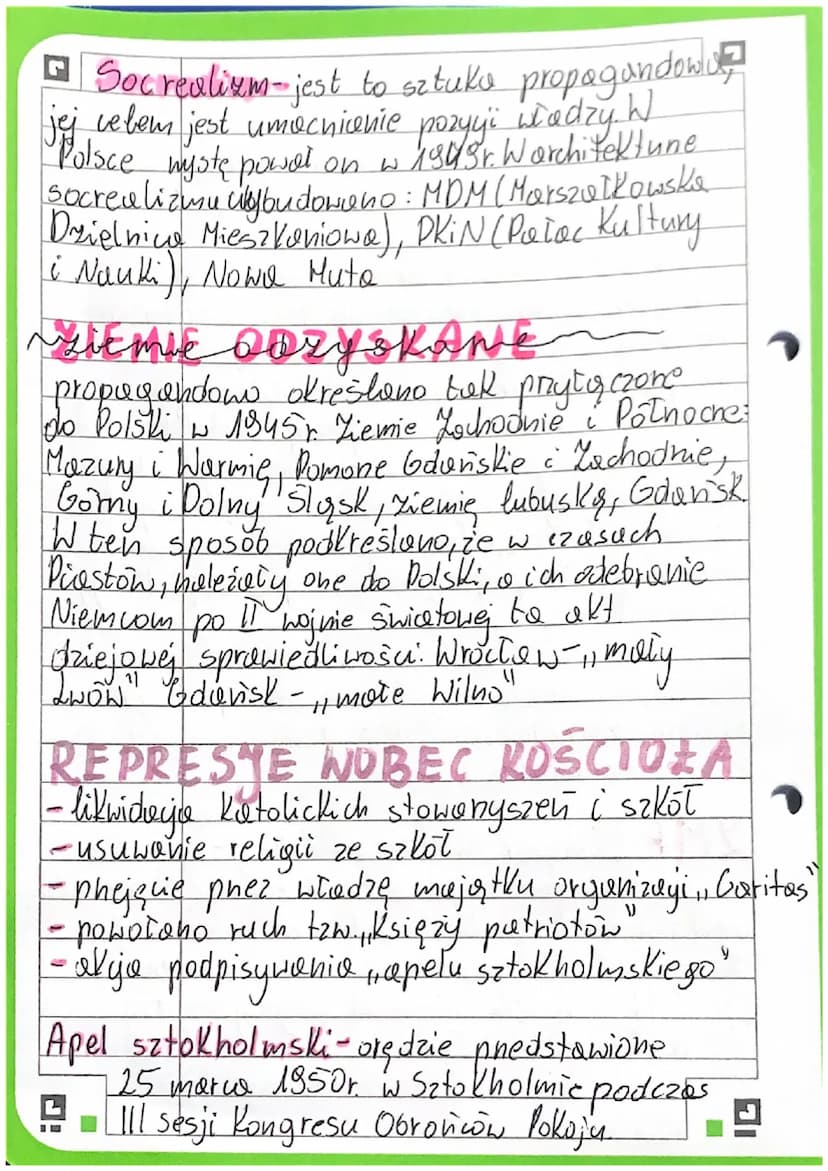 Socrealizm - jest to sztuka propagandowa,
jej celem jest umocnienie pozycji władzy. W
Polsce występował on w 1949r. W architekturze
socrealizmu wybudowano: MDM (Marszałkowska
Dzielnica Mieszkaniowa), PKiN (Pałac Kultury
i Nauki), Nowa Huta
ziemie odzyskane
propagandowo określano tak przyłączone
do Polski w 1945r. Ziemie Zachodnie i Północne:
Mazury i Warmię, Pomorze Gdańskie i Zachodnie,
Górny i Dolny Śląsk, ziemię lubuską, Gdańsk.
W ten sposób podkreślano, że w czasach
Piastów, należały one do Polski, a ich odebranie
Niemcom po II wojnie światowej to akt
dziejowej sprawiedliwości. Wrocław - „mały
Lwów" Gdańsk - „małe Wilno"
REPRESJE WOBEC KOŚCIOŁA
- likwidacja katolickich stowarzyszeń i szkół
- usuwanie religii ze szkół
- przejęcie przez władzę majątku organizacji „Caritas"
- powołano ruch tzw. „księży patriotów"
- akcja podpisywania „apelu sztokholmskiego"
Apel sztokholmski - orędzie przedstawione
25 marca 1950r. w Sztokholmie podczas
III sesji Kongresu Obrońców Pokoju.